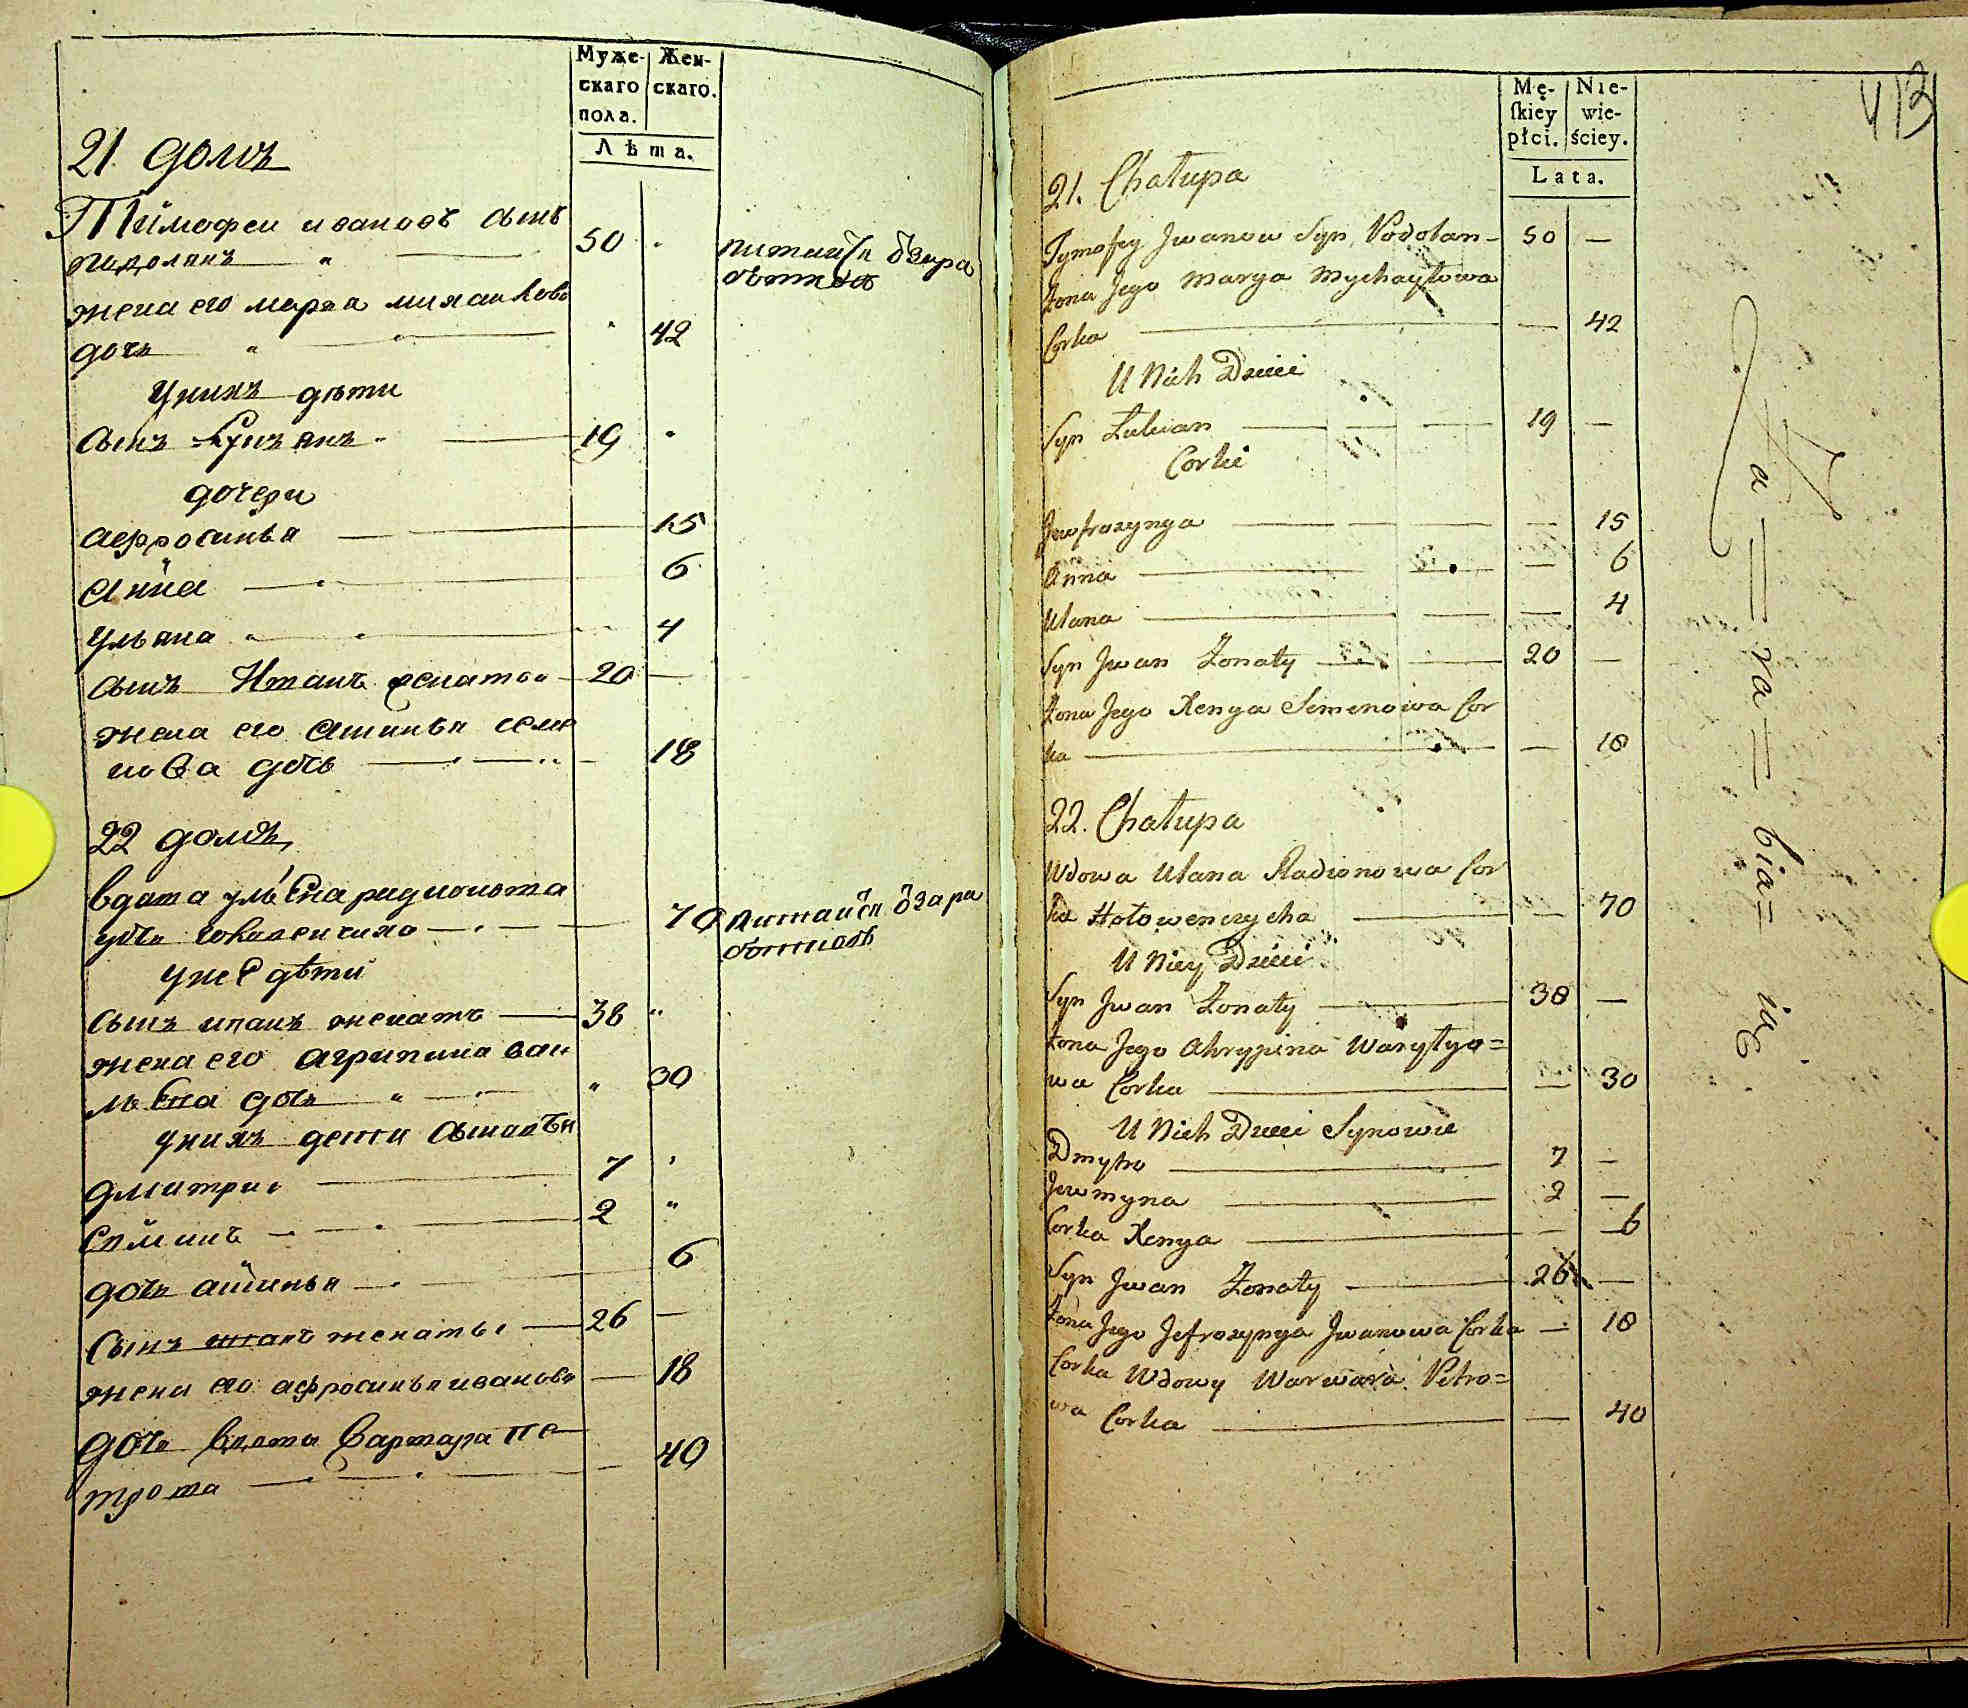 Муже-
скаго
пола.
Жен-
скаго.
Лѣта.
21. домъ
Тимофеи ивановъ сынъ
подолянъ 50
питаится о᷃зара
боткою
жена его марья михаилова
дочь 42
у нихъ дѣти
сынъ Лукъянъ 19
дочери
аефросинья 15
Анна 6
ульяна 4
сынъ Иванъ женатои 20
жена его аксинья семе
нова дочь 18
22 домъ,
вдова ульяна радионова
дочь 70
питаится о᷃зара
боткою
у неѣ дѣти
сынъ иванъ женатъ 38
жена его агрипина васи
льева дочь 30
у нихъ дети сыновья
дмитрии 7
2
дочь аксинья 6
сынъ иванъ женаты 26
жена его афросинья иванова 18
дочь вдова варвара пе
трова 40
413
Mę-
ſkiey
płci.
Nie-
wie-
ściey.
Lata.
21. Chałupa
Tymofey Jwanow Syn Podolan 50
Żona Jego Marya Mychayłowa
Corka 42
U Nich Dzieci
Syn Łukian 19
Corki
Jewfrozynya 15
Anna 6
Ulana 4
Syn Jwan Żonaty 20
Żona Jego Xenya Semenowa Cor
ka 18
22. Chałupa
Wdowa Ulana Radionowa Cor
ka Hołowenczycha 70
U Niey Dzieci
Syn Jwan Żonaty 38
Żona Jego Ahrypina Wasyłyo=
wa Corka 30
U Nich Dzieci Synowie
Dmytro 7
Jewmyna 2
Corka Xenya 6
Syn Jwan Żonaty 26
Żona Jego Jefrozynya Jwanowa Corka 18
Corka Wdowy Warwara Petro=
wa Corka 40